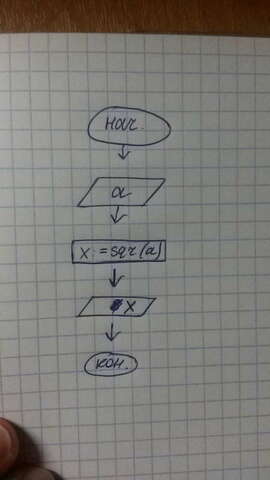 нач.
a
x:=sqr(a)
x
кон.